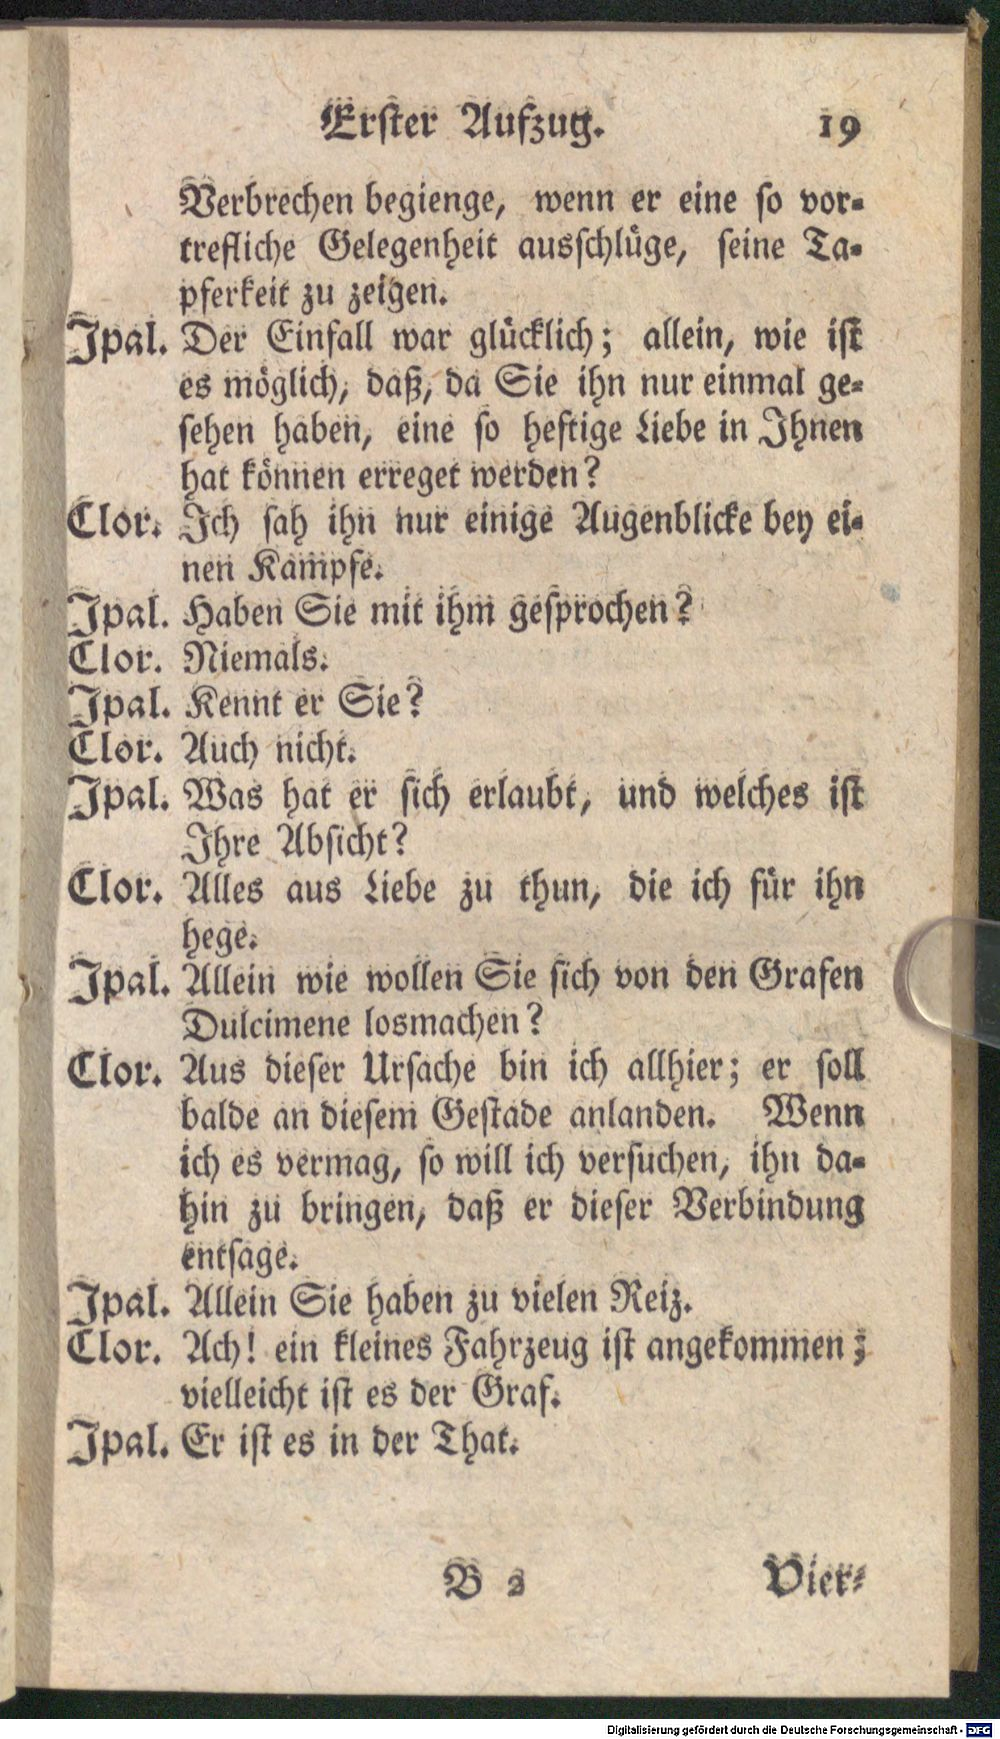 Erster Aufzug. 19
Verbrechen begienge, wenn er eine so vor-
trefliche Gelegenheit ausschlüge, seine Ta-
pferkeit zu zeigen.
Ipal. Der Einfall war glücklich; allein, wie ist
es möglich, daß, da Sie ihn nur einmal ge-
sehen haben, eine so heftige Liebe in Ihnen
hat können erreget werden?
Clor. Ich sah ihn nur einige Augenblicke bey ei-
nen Kampfe.
Ipal. Haben Sie mit ihm gesprochen?
Clor. Niemals.
Ipal. Kennt er Sie?
Clor. Auch nicht.
Ipal. Was hat er sich erlaubt, und welches ist
Ihre Absicht?
Clor. Alles aus Liebe zu thun, die ich für ihn
hege.
Ipal. Allein wie wollen Sie sich von den Grafen
Dulcimene losmachen?
Clor. Aus dieser Ursache bin ich allhier; er soll
balde an diesem Gestade anlanden. Wenn
ich es vermag, so will ich versuchen, ihn da-
hin zu bringen, daß er dieser Verbindung
entsage.
Ipal. Allein Sie haben zu vielen Reiz.
Clor. Ach! ein kleines Fahrzeug ist angekommen;
vielleicht ist es der Graf.
Ipal. Er ist es in der That.
B 2 Vier-
Digitalisierung gefördert durch die Deutsche Forschungsgemeinschaft - DFG